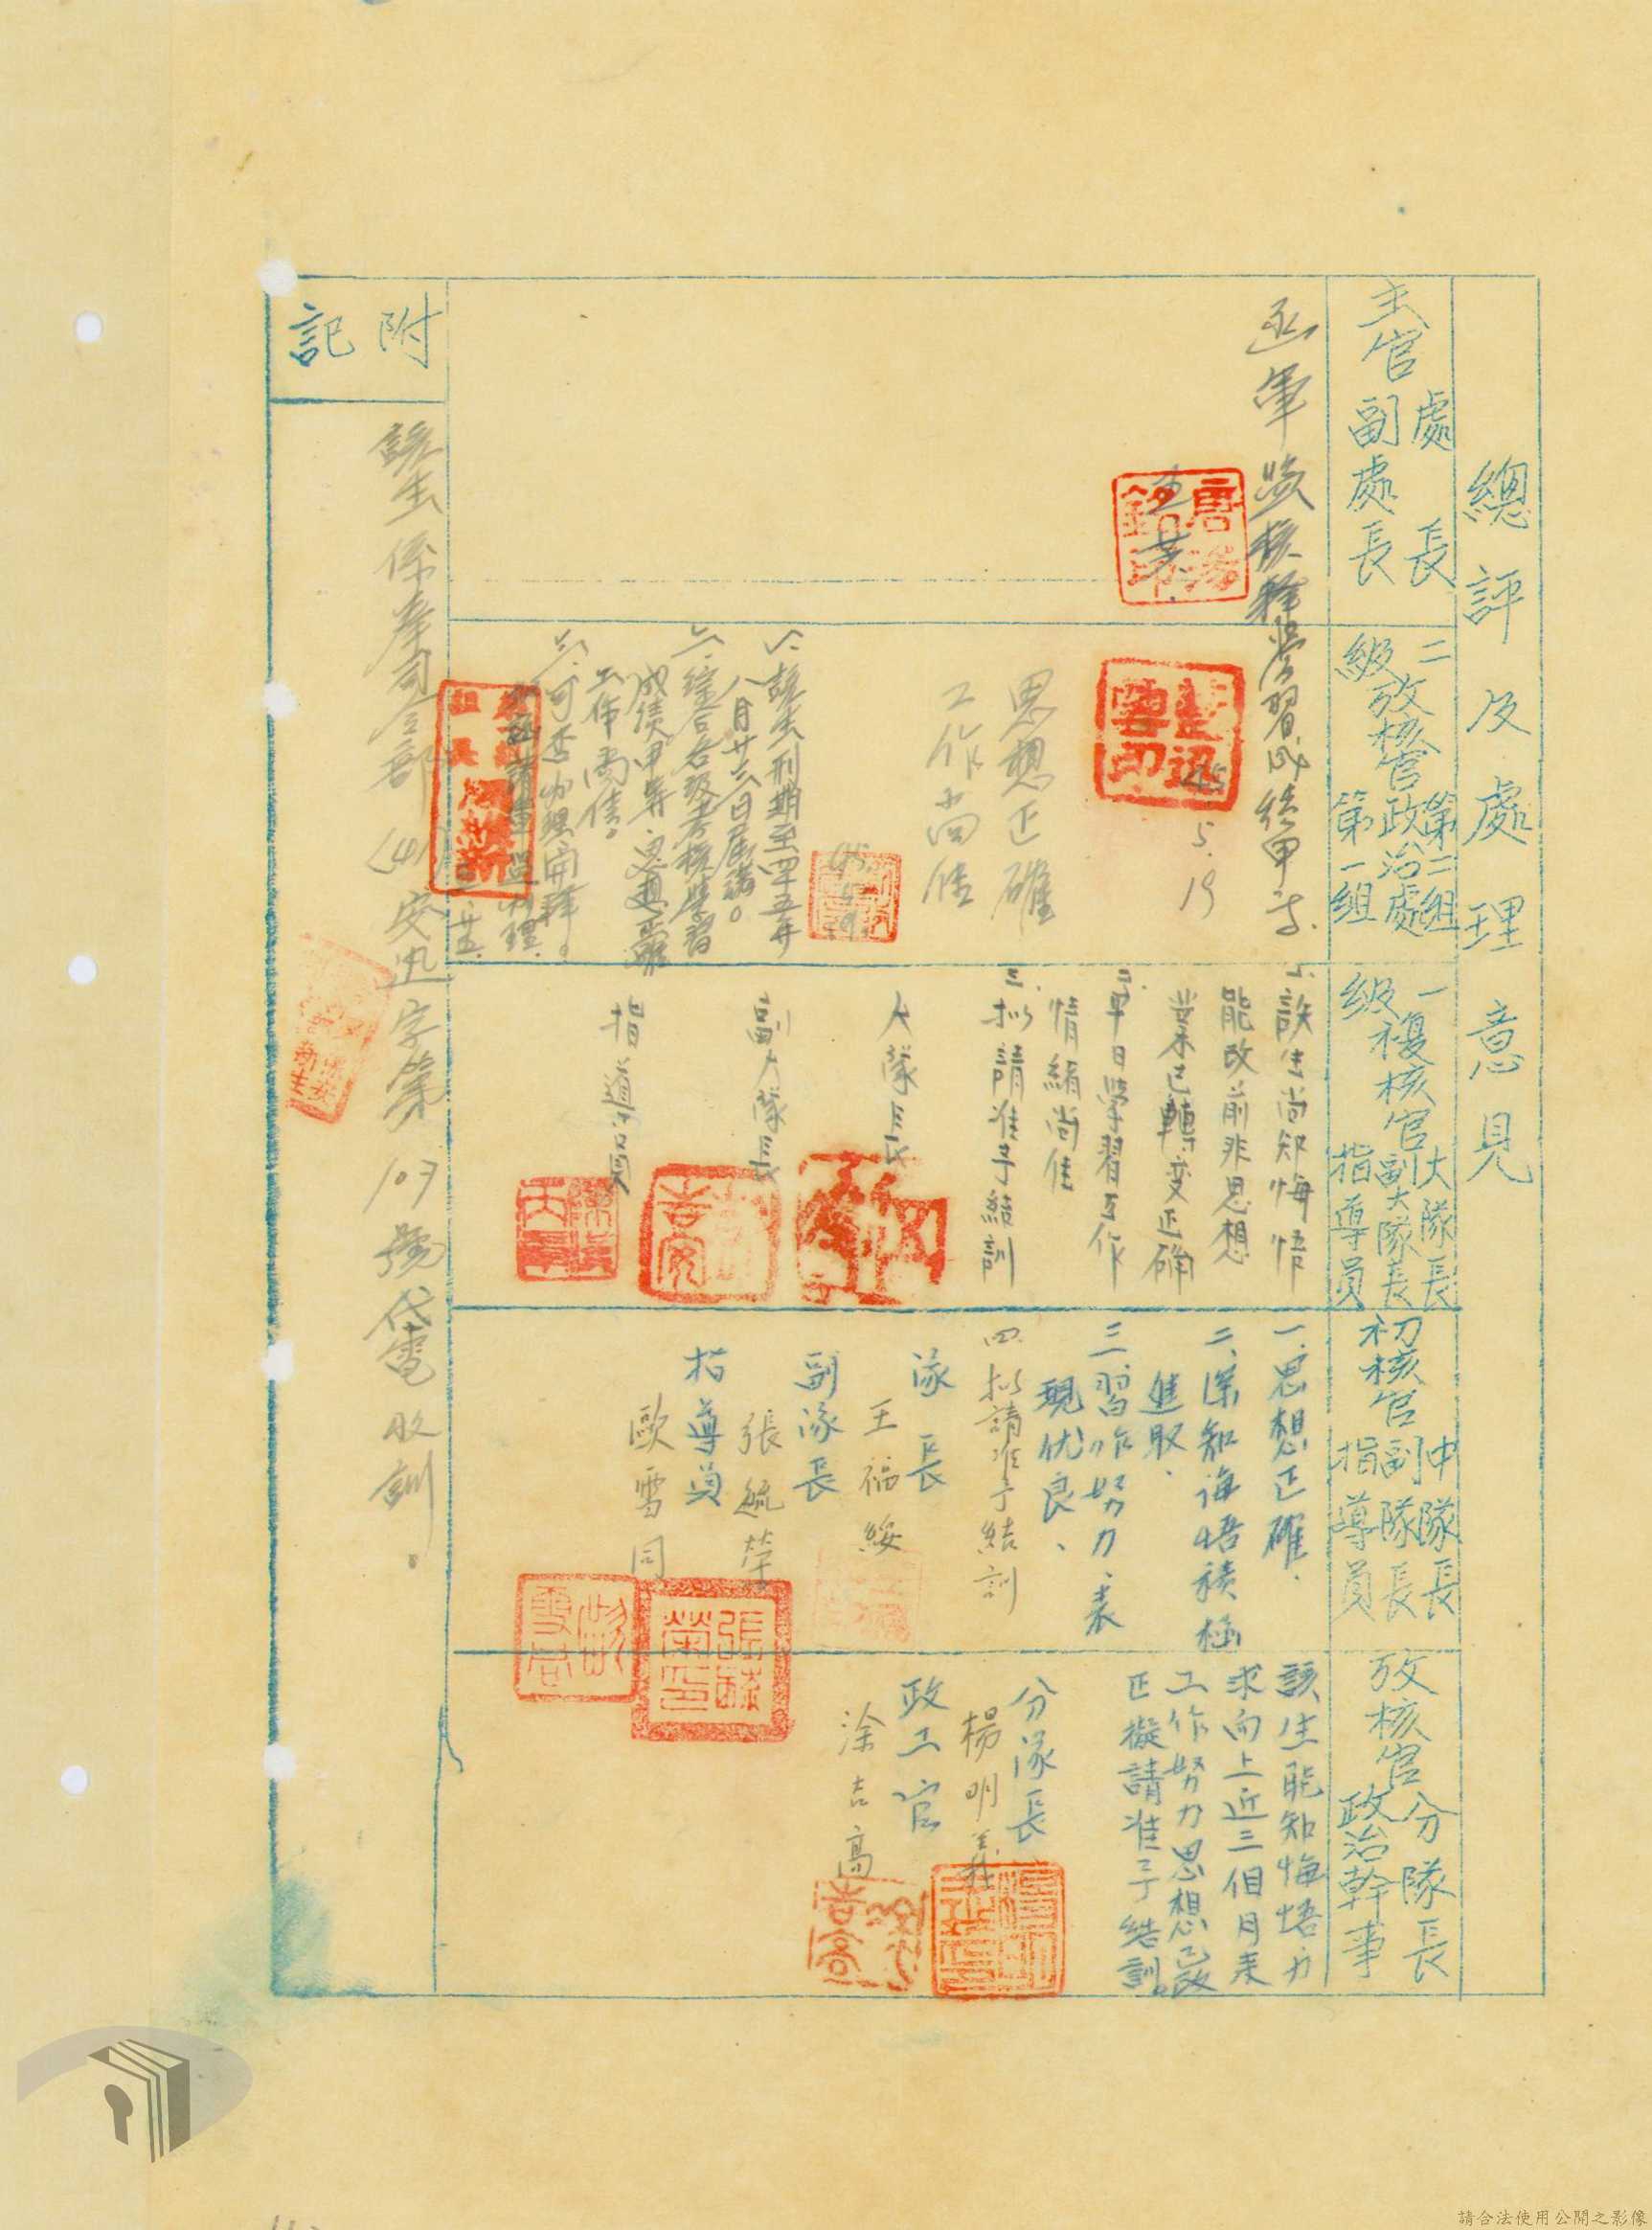 總評及處理意見
主官
處長
副處長
二級攷核官
第二組
政治處
第一組
一級複核官
大隊長
副大隊長
指導員
初核官
中隊長
副隊長
指導員
攷核官
分隊長
政治幹事
思想正確
工作尚佳
45.5.19
八月廿六日屆滿。
二、綜合各級考核學習
成績甲等、思想正確
工作尚佳。
三、可否办理開釋。
1.該生尚知悔悟
能改前非思想
業已轉變正确
2.平日學習工作
情緒尚佳
三.拟請准予結訓
大隊長
副大隊長
指導員
一、思想正確、
二、深知悔悟積極
進取、
三、習作努力、表
現优良、
四拟請准予結訓
隊長
王福綏
副隊長
張毓榮
指導員
歐雪同
該生能知悔悟力
求向上近三個月來
工作努力思想已改
正擬請准予結訓。
分隊長
楊明義
政工官
涂吉高
附記
該生係奉司令部(41)安迅字第107號代電收訓。
張毓榮印
請合法使用公開之影像